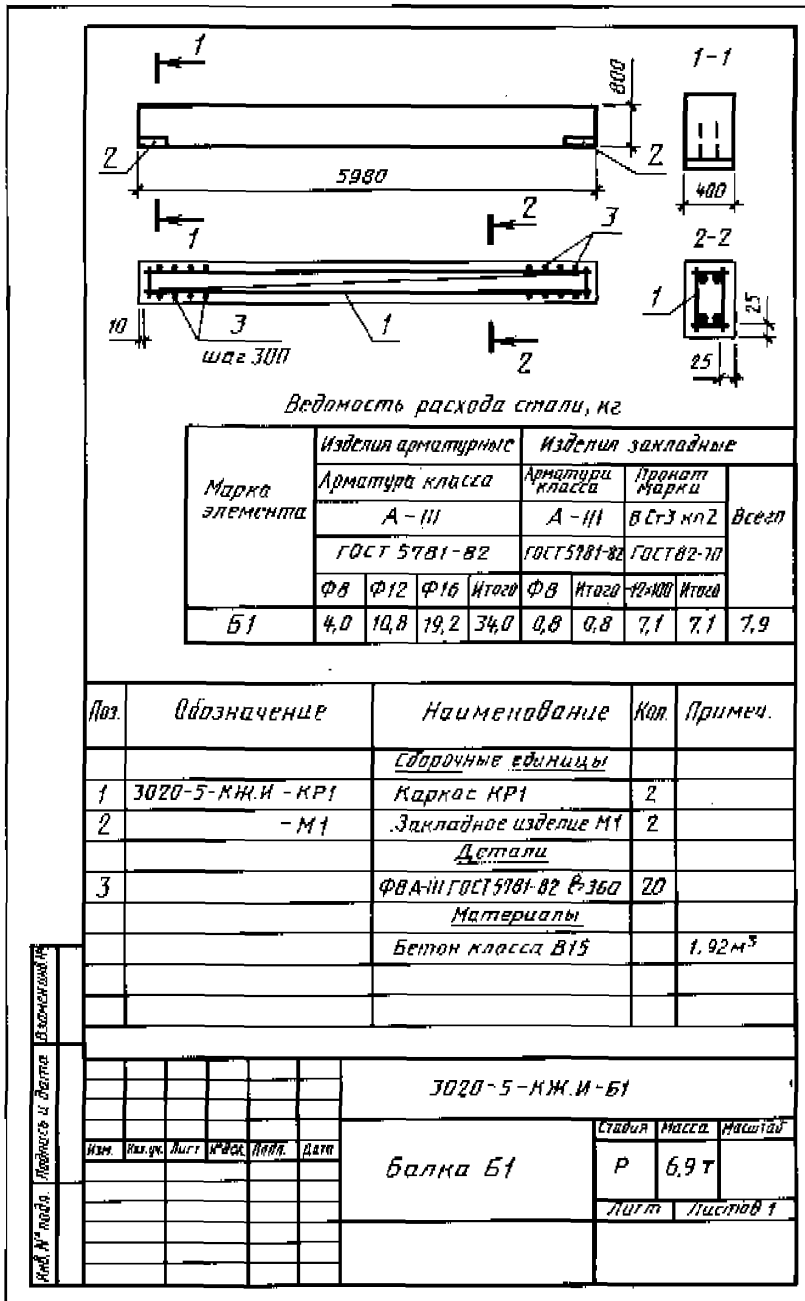 1
1-1
800
2
2
5980
400
1
2
3
2-2
1
10
3
1
25
шаг 300
2
25
Ведомость расхода стали, кг
Марка элемента
Изделия арматурные
Изделия закладные
Арматура класса
Арматура класса
Прокат марки
Всего
А-III
А-III
ВСт3 кп2
ГОСТ 5781-82
ГОСТ 5781-82
ГОСТ 82-70
Ф8
Ф12
Ф16
Итого
Ф8
Итого
-12×100
Итого
Б1
4,0
10,8
19,2
34,0
0,8
0,8
7,1
7,1
7,9
Поз.
Обозначение
Наименование
Кол.
Примеч.
Сборочные единицы
1
3020-5-КЖ.И-КР1
Каркас КР1
2
2
-М1
Закладное изделие М1
2
Детали
3
Ф8 А-III ГОСТ 5781-82 ℓ=360
20
Материалы
Бетон класса В15
1,92 м³
Взамен инв. №
Подпись и дата
Инв. № подл.
3020-5-КЖ.И-Б1
Изм.
Кол.уч.
Лист
№ док.
Подп.
Дата
Балка Б1
Стадия
Масса
Масштаб
Р
6,9 т
Лист
Листов 1